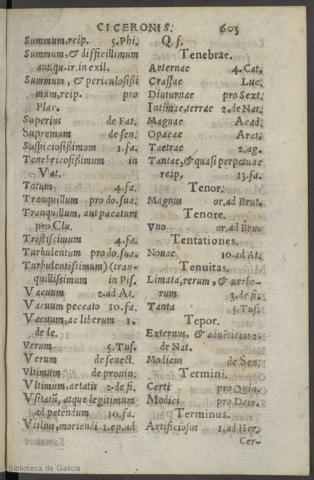 CICERONIS. 605
Summum, reip. 5. Phi.
Summum, & difficillimum
antiqu. ir. in exil.
Summum, & periculosißi
mum, reip. pro
Flac.
Superius de Fat.
Supremum de sen.
Suspiciosißimum 1. fa.
Tenebricosißimum in
Vat.
Totum 4. fa.
Tranquillum pro do. sua.
Tranquillum, aut pacatum
pro Clu.
Tristissimum 4. fa.
Turbulentum pro do. sua.
Turbulentissimum) (tran-
quillissimum in Pis.
Vacuum 2. ad At.
Vacuum peccato 10. fa.
Vacuum, ac liberum 1.
de le.
Verum 5. Tus.
Verum de senect.
Vltimum de prouin.
Vltimum, aetatis 2. de fi.
Vsitatū, atque legitimum
ad petendum 10. fa.
Vltimū, moriendi 1. ep. ad
Q. f.
Tenebrae.
Aeternae 4. Cat.
Crassae Luc.
Diuturnae pro Sext.
Intimae, terrae 2. de Nat.
Magnae Acad.
Opacae Arat.
Taetrae 2. ag.
Tantae, & quasi perpetuae
reip. 13. fa.
Tenor.
Magnus or. ad Brut.
Tenore.
Vno or. ad Bru.
Tentationes.
Nouae 10. ad At.
Tenuitas.
Limata, rerum, & uerbo-
rum 3. de fi.
Tanta 5. Tus.
Tepor.
Externus, & aduēticius 2.
de Nat.
Modicus de Sen.
Termini.
Certi pro Quin.
Modici pro Deio.
Terminus.
Artificiosus 1. ad Her.
Cer-
Biblioteca de Galicia